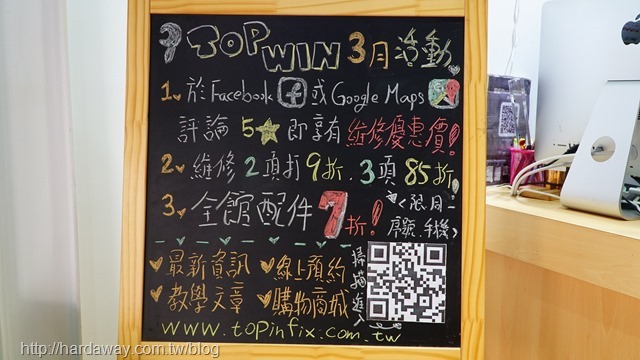 TOPWIN 3月活動
1. 於Facebook f 或Google Maps
評論 5 即享有 維修優惠價!
2. 維修2項打9折.3項85折!
3. 全館配件7折! <限同一
序號手機>
最新資訊 線上預約
教學文章 購物商城
掃描進入
www.topinfix.com.tw
http://hardaway.com.tw/blog